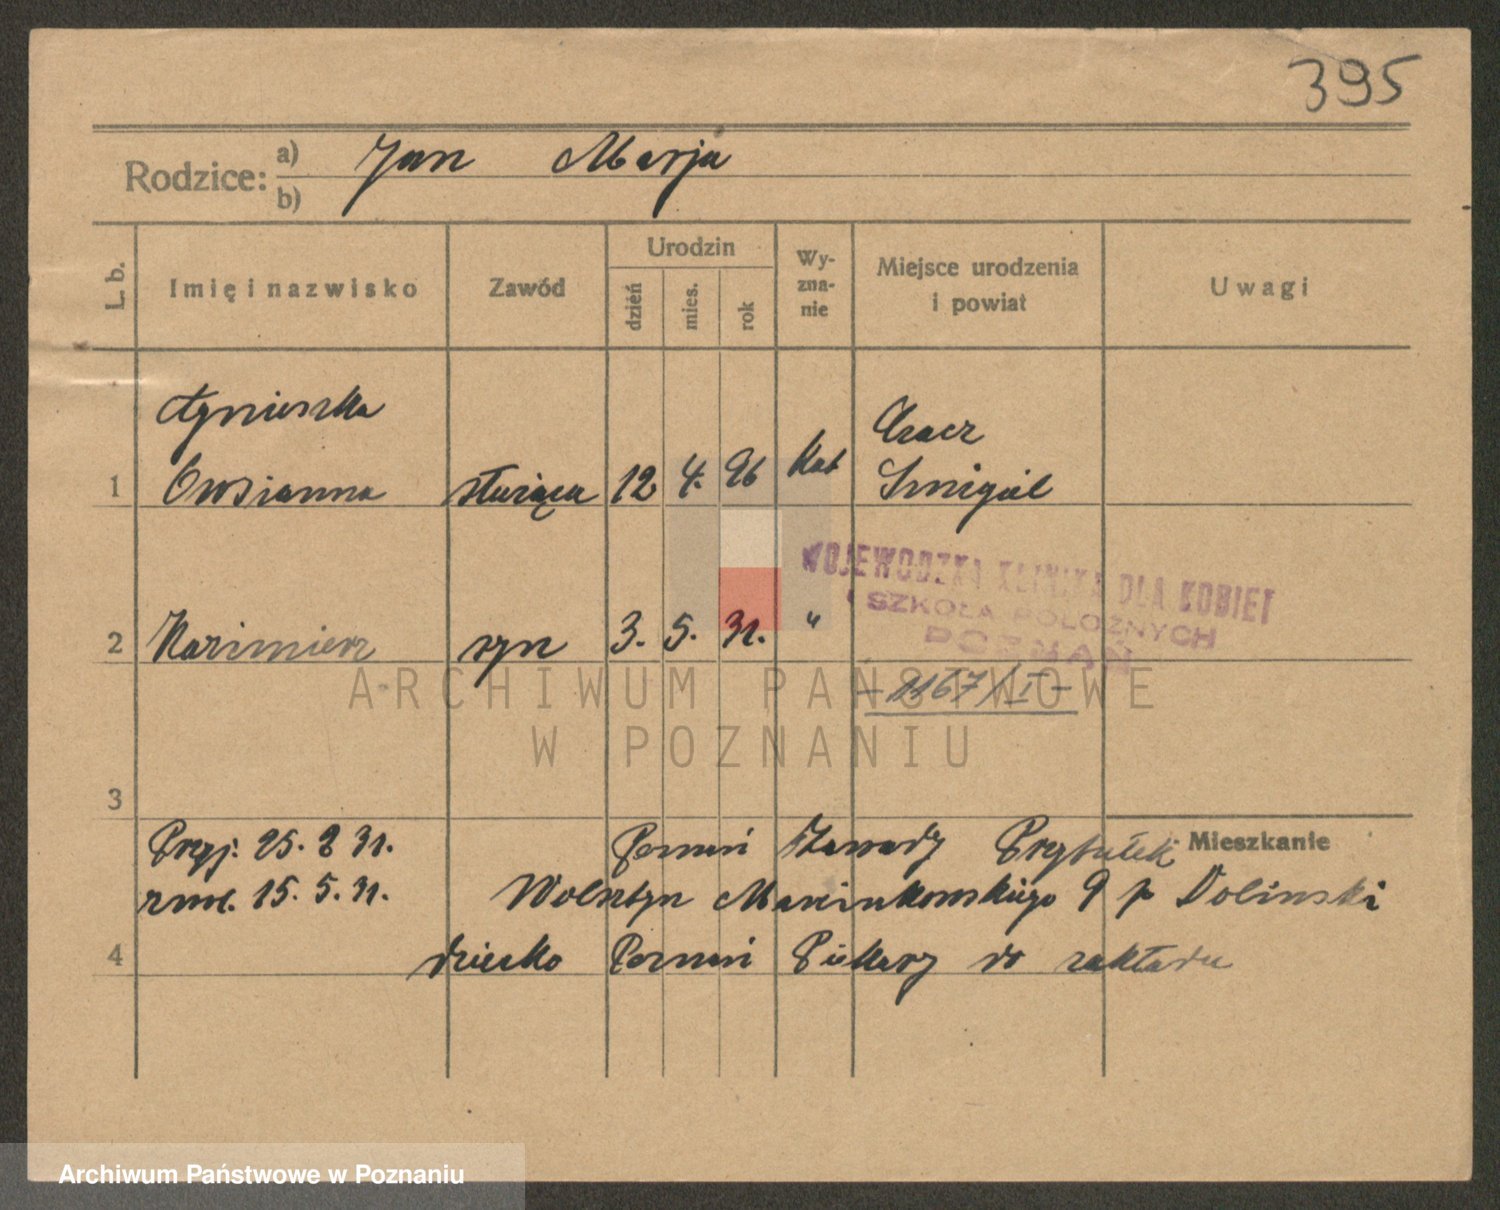 395
Rodzice: a) Jan Marja
b)
L. b. Imię i nazwisko Zawód Urodzin dzień mies. rok Wy-zna-nie Miejsce urodzenia i powiat Uwagi
Agnieszka Czacz
1 Owsianna służąca 12 4. 96 kat Śmigiel
WOJEWÓDZKA KLINIKA DLA KOBIET
I SZKOŁA POŁOŻNYCH
POZNAŃ
2 Kazimierz syn 3. 5. 31. "
- 1167/I -
ARCHIWUM PAŃSTWOWE
W POZNANIU
3
Mieszkanie
Przyj. 25. 2 31. Poznań Zawady Przytułek
zwol. 15. 5. 31. Wolsztyn Marcinkowskiego 9 p Doliński
4 dziecko Poznań Piekary do zakładu
Archiwum Państwowe w Poznaniu